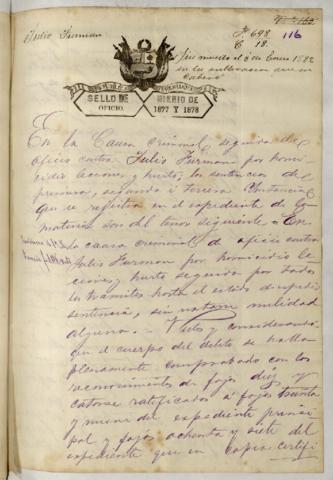 Julio Furman
Fs. 698.
C 18.
116
Fué muerto el 8 de Enero 1882
en la sublevacion que en
SELLO DE
OFICIO.
BIENIO DE
1877 Y 1878
En la Causa criminal seguida de
oficio contra Julio Furman por homi
cidio lesiones y hurto, las sentencias de
primera, segunda i tercera Instancia
que se registran en el expediente de la
materia son del tenor siguiente = En
la causa criminal de oficio contra
Julio Furman por homicidio le
ciones y hurto seguida por todos
los trámites hasta el estado de espedir
sentencia, sin nulidad
alguna. - Vistos y considerando:
que el cuerpo del delito se halla
plenamente comprobado con los
reconocimientos de fojas diez y
catorse ratificados á fojas treinta
y nueve del expediente princi
pal y fojas ochenta y siete del
expediente que en copia certifi